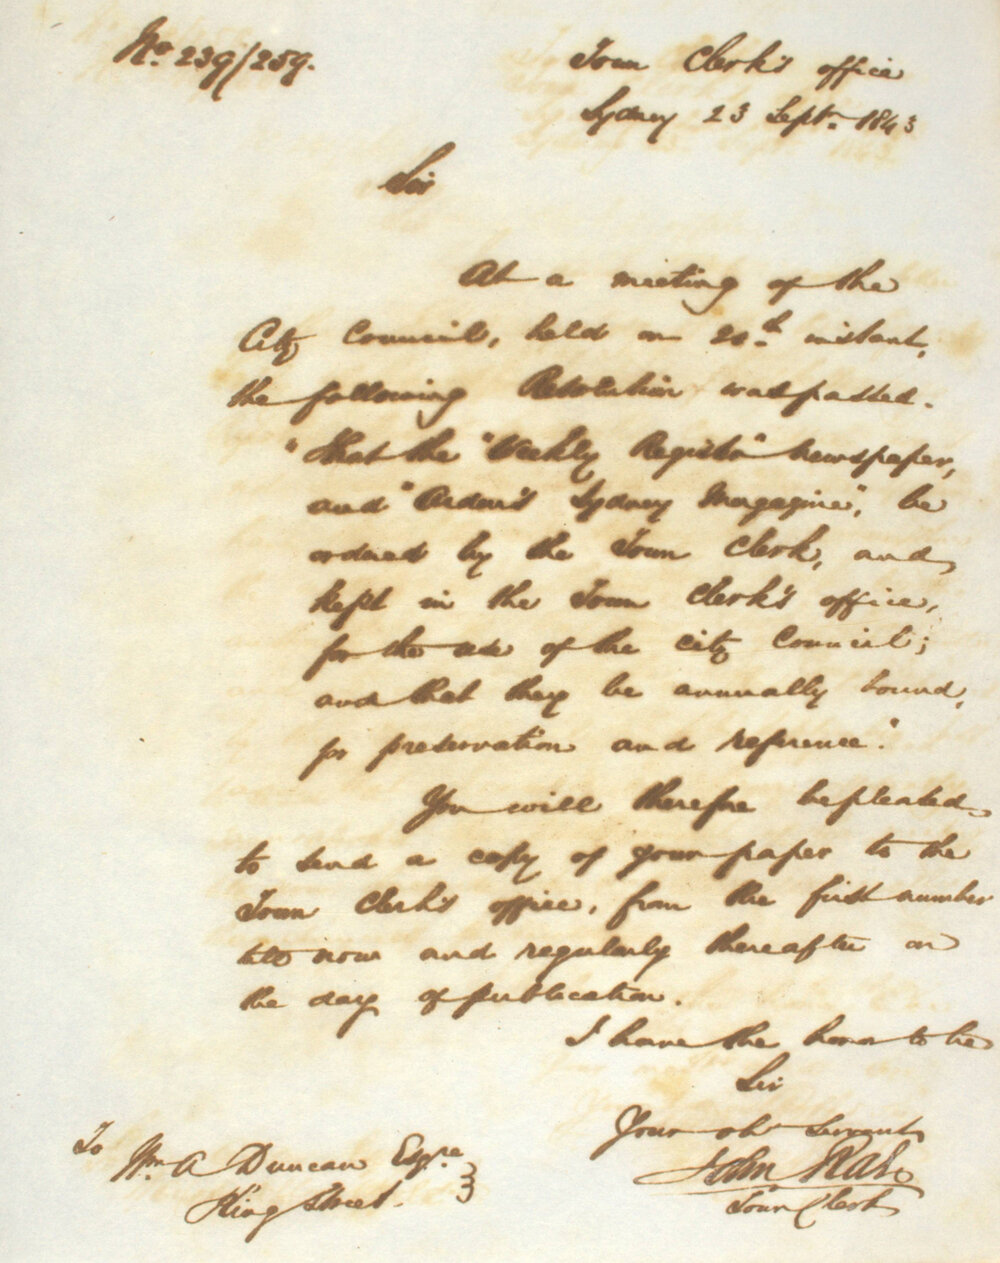 No. 239/259.
Town Clerk's office
Sydney 23 Septr. 1843
Sir
At a meeting of the
City Council, held on 20th instant,
the following Resolution was passed.
"That the "Weekly Register" newspaper,
and "Arden's Sydney Magazine", be
ordered by the Town Clerk, and
kept in the Town Clerk's office,
for the use of the city Council;
and that they be annually bound,
for preservation and reference."
You will therefore be pleased
to send a copy of your paper to the
Town Clerk's office, from the first number
till now and regularly thereafter on
the day of publication.
I have the honor to be
Sir
Your obt. servant
John Rae
Town Clerk
To
Wm. A Duncan Esqre
King Street.